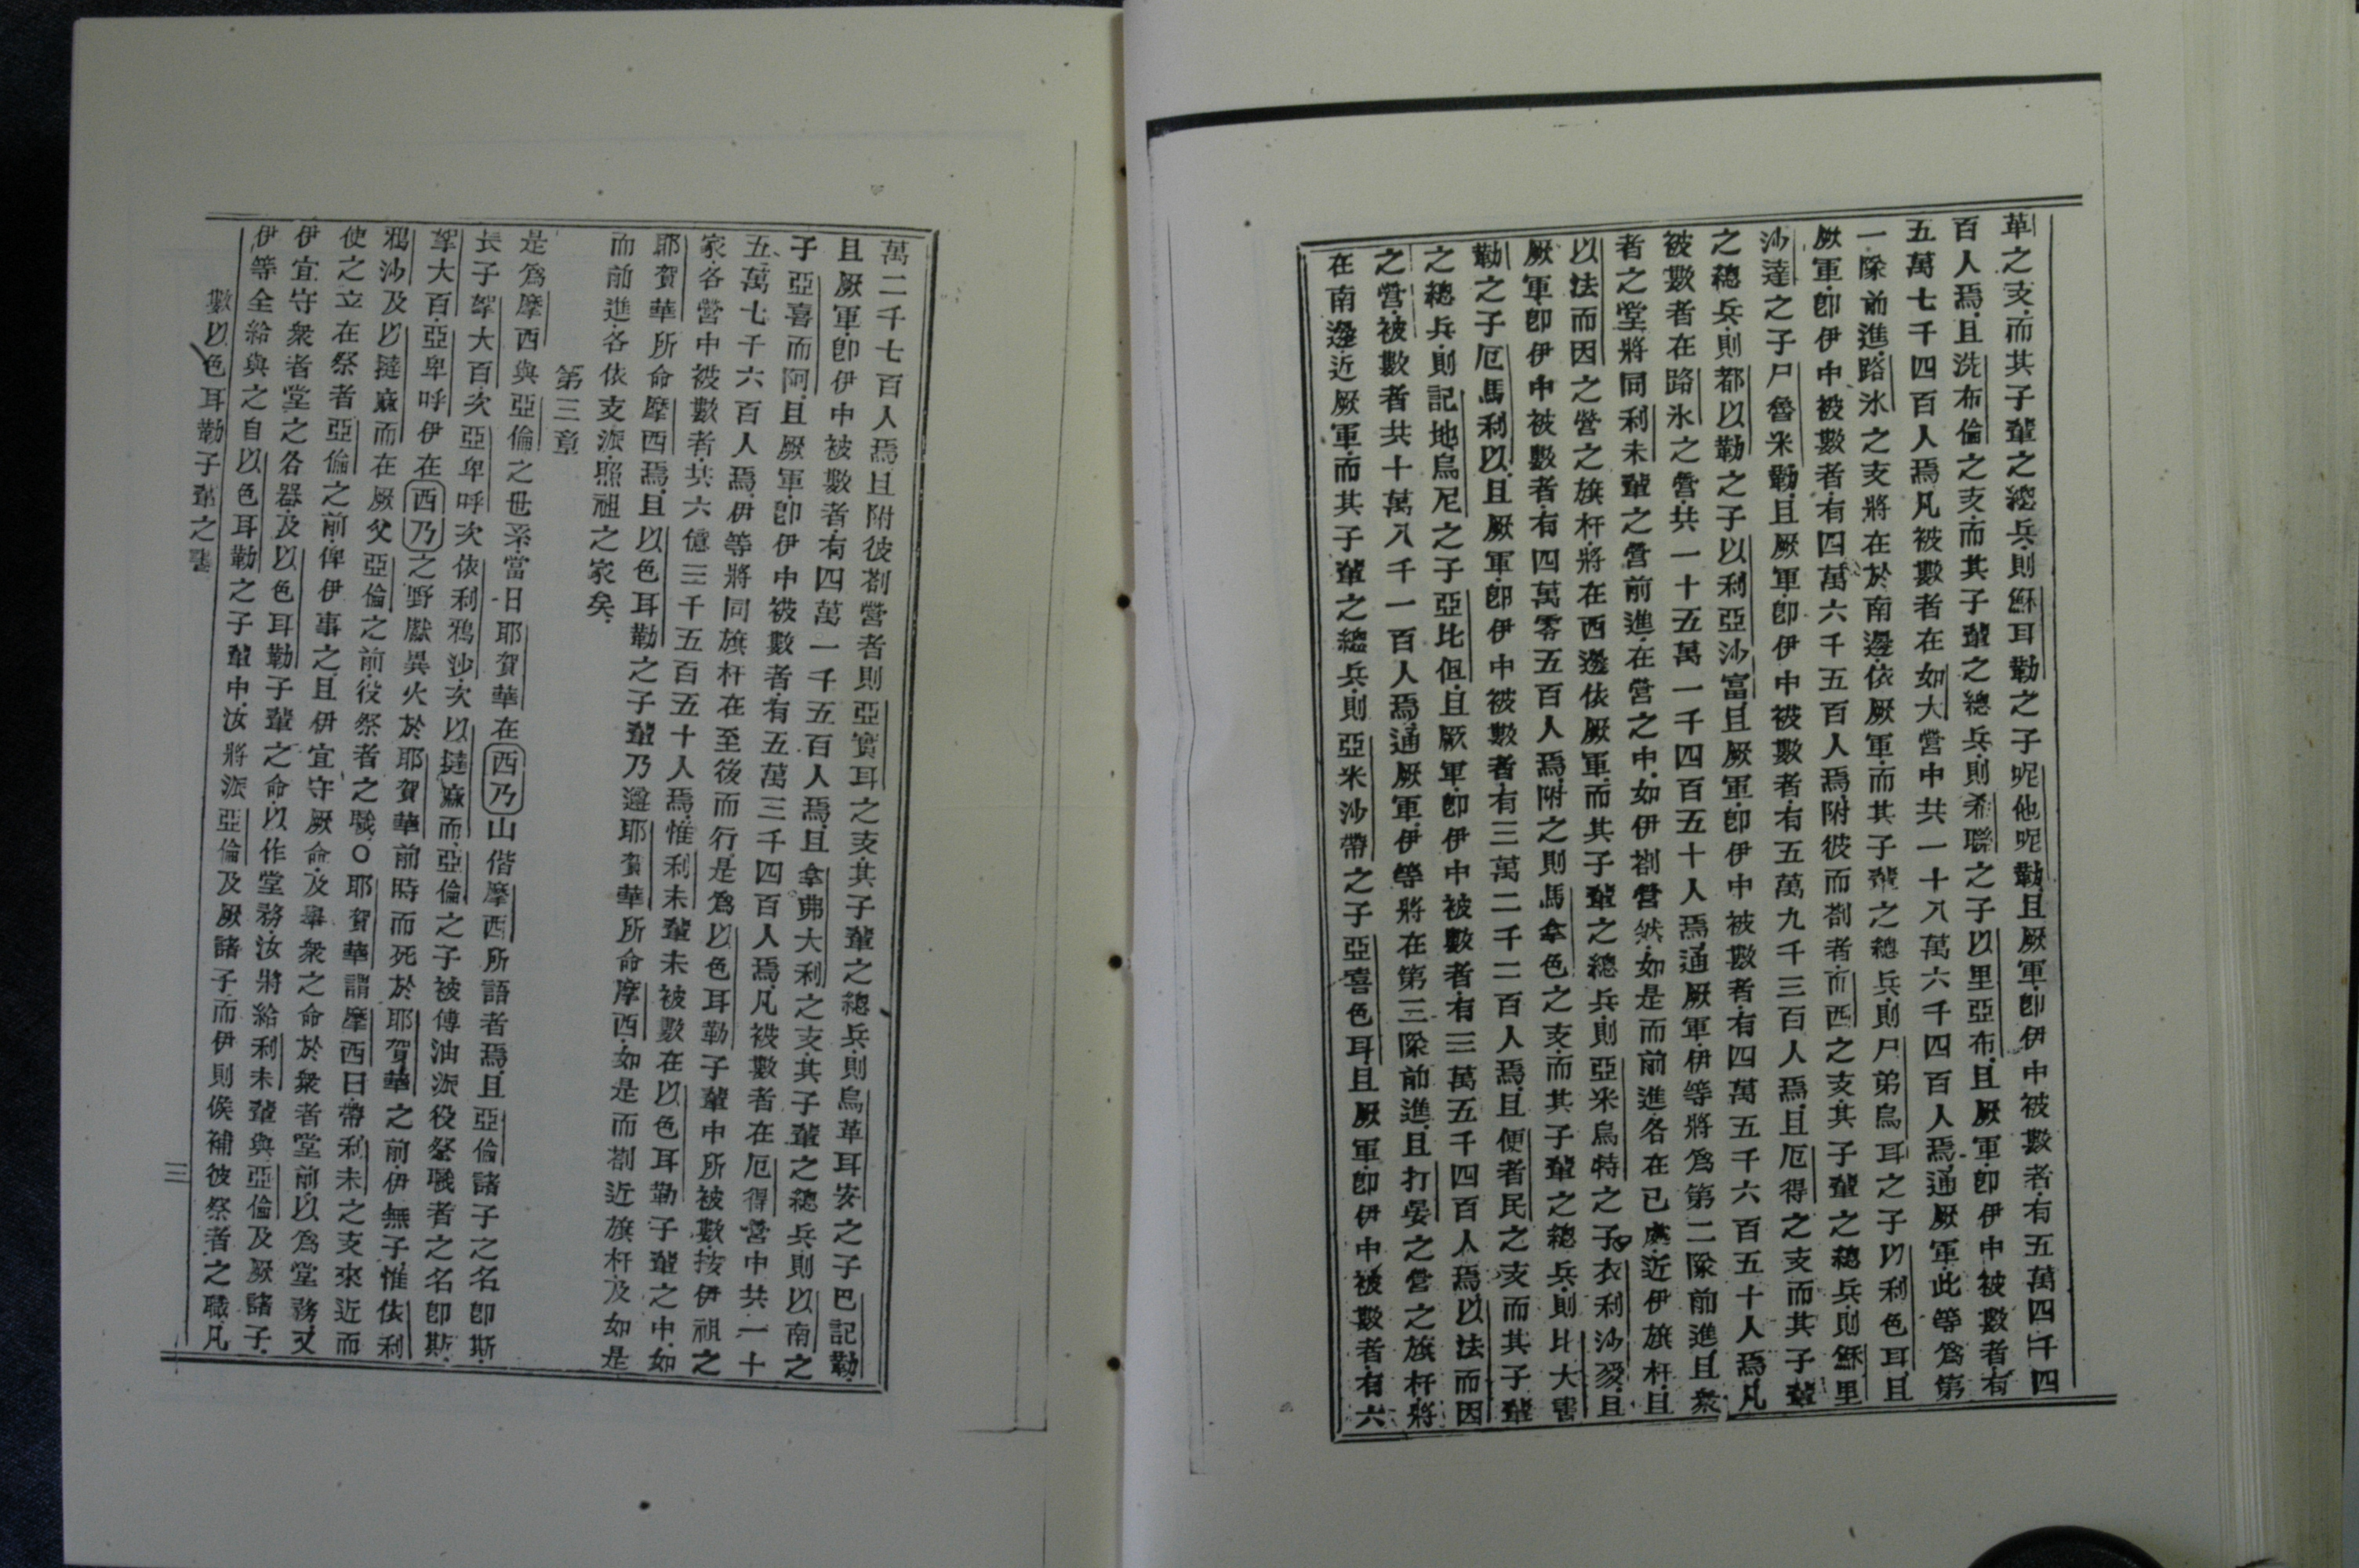 革之支而其子輩之總兵則穌耳勒之子呢他呢勒且厥軍卽伊中被數者有五萬四千四
百人焉且洗布倫之支而其子輩之總兵則希聯之子以里亞布且厥軍卽伊中被數者有
五萬七千四百人焉凡被數者在如大營中共一十八萬六千四百人焉通厥軍此等爲第
一隊前進路氷之支將在於南邊依厥軍而其子輩之總兵則尸弟烏耳之子以利色耳且
厥軍卽伊中被數者有四萬六千五百人焉附彼而剳者而西之支其子輩之總兵則穌里
沙達之子尸魯米勒且厥軍卽伊中被數者有五萬九千三百人焉且厄得之支而其子輩
之總兵則都以勒之子以利亞沙富且厥軍卽伊中被數者有四萬五千六百五十人焉凡
被數者在路氷之營共一十五萬一千四百五十人焉通厥軍伊等將爲第二隊前進且衆
者之堂將同利未輩之營前進在營之中如伊剳營然如是而前進各在已處近伊旗杆且
以法而因之營之旗杆將在西邊依厥軍而其子輩之總兵則亞米烏特之子衣利沙麥且
厥軍卽伊中被數者有四萬零五百人焉附之則馬拿色之支而其子輩之總兵則比大書
勒之子厄馬利以且厥軍卽伊中被數者有三萬二千二百人焉且便者民之支而其子輩
之總兵則記地烏尼之子亞比但且厥軍卽伊中被數者有三萬五千四百人焉以法而因
之營被數者共十萬八千一百人焉通厥軍伊等將在第三隊前進且打晏之營之旗杆將
在南邊近厥軍而其子輩之總兵則亞米沙帶之子亞喜色耳且厥軍卽伊中被數者有六
萬二千七百人焉且附彼剳營者則亞實耳之支其子輩之總兵則烏革耳安之子巴記勒
且厥軍卽伊中被數者有四萬一千五百人焉且拿弗大利之支其子輩之總兵則以南之
子亞喜而阿且厥軍卽伊中被數者有五萬三千四百人焉凡被數者在厄得營中共一十
五萬七千六百人焉伊等將同旗杆在至後而行是爲以色耳勒子輩中所被數按伊祖之
家各營中被數者共六億三千五百五十人焉惟利未輩未被數在以色耳勒子輩之中如
耶賀華所命摩西焉且以色耳勒之子輩乃遵耶賀華所命摩西如是而剳近旗杆及如是
而前進各依支派照祖之家矣
第三章
是爲摩西與亞倫之世系當日耶賀華在西乃山偕摩西所語者焉且亞倫諸子之名卽斯
長子拏大百次亞卑呼次依利鴉沙次以撻麻而亞倫之子被傅油派役祭職者之名卽斯
拏大百亞卑呼伊在西乃之野獻異火於耶賀華前時而死於耶賀華之前伊無子惟依利
鴉沙及以撻麻而在厥父亞倫之前役祭者之職○耶賀華謂摩西曰帶利未之支來近而
使之立在祭者亞倫之前俾伊事之且伊宜守厥命及舉衆之命於衆者堂前以爲堂務又
伊宜守衆者堂之各器及以色耳勒子輩之命以作堂務汝將給利未輩與亞倫及厥諸子
伊等全給與之自以色耳勒之子輩中汝將派亞倫及厥諸子而伊則俟補彼祭者之職凡
數以色耳勒子輩之書
三